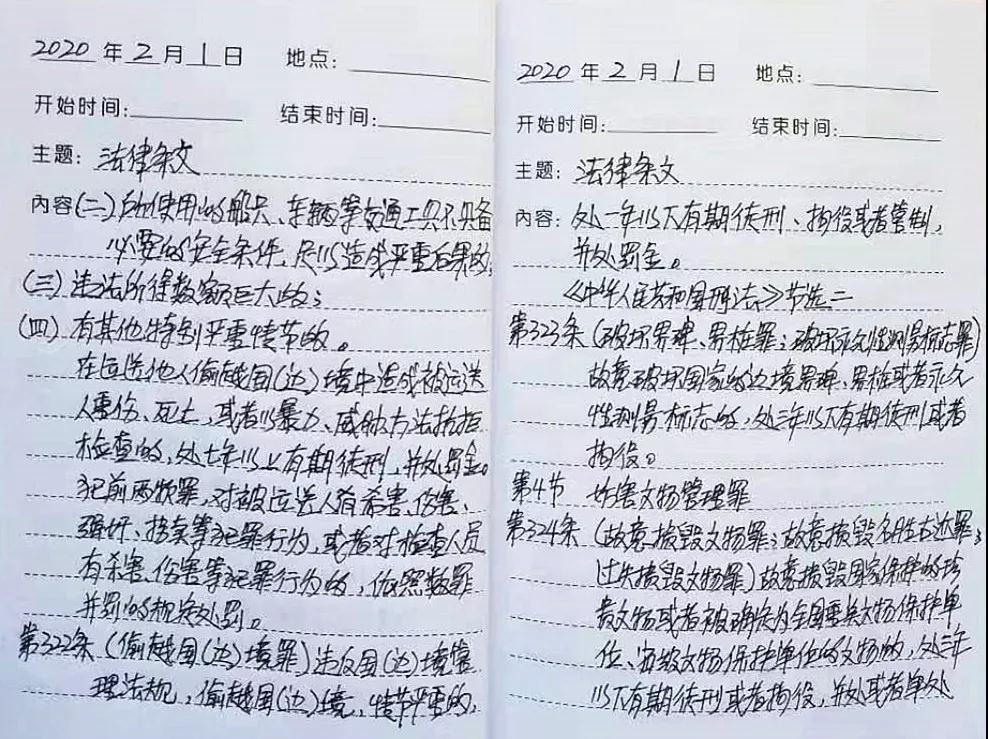 2020 年 2 月 1 日 地点:
开始时间: 结束时间:
主题: 法律条文
内容 (二) 所使用的船只、车辆等交通工具不具备
必要的安全条件, 足以造成严重后果的;
(三) 违法所得数额巨大的;
(四) 有其他特别严重情节的。
在运送他人偷越国(边)境中造成被运送
人重伤、死亡, 或者以暴力、威胁方法抗拒
检查的, 处七年以上有期徒刑, 并处罚金。
犯前两款罪, 对被运送人有杀害、伤害、
强奸、拐卖等犯罪行为, 或者对检查人员
有杀害、伤害等犯罪行为的, 依照数罪
并罚的规定处罚。
第322条 (偷越国(边)境罪) 违反国(边)境管
理法规, 偷越国(边)境, 情节严重的,
2020 年 2 月 1 日 地点:
开始时间: 结束时间:
主题: 法律条文
内容: 处一年以下有期徒刑、拘役或者管制,
并处罚金。
《中华人民共和国刑法》节选二
第323条 (破坏界碑、界桩罪; 破坏永久性测量标志罪)
故意破坏国家的边境界碑、界桩或者永久
性测量标志的, 处三年以下有期徒刑或者
拘役。
第4节 妨害文物管理罪
第324条 (故意损毁文物罪; 故意损毁名胜古迹罪;
过失损毁文物罪) 故意损毁国家保护的珍
贵文物或者被确定为全国重点文物保护单
位、省级文物保护单位的文物的, 处三年
以下有期徒刑或者拘役, 并处或者单处